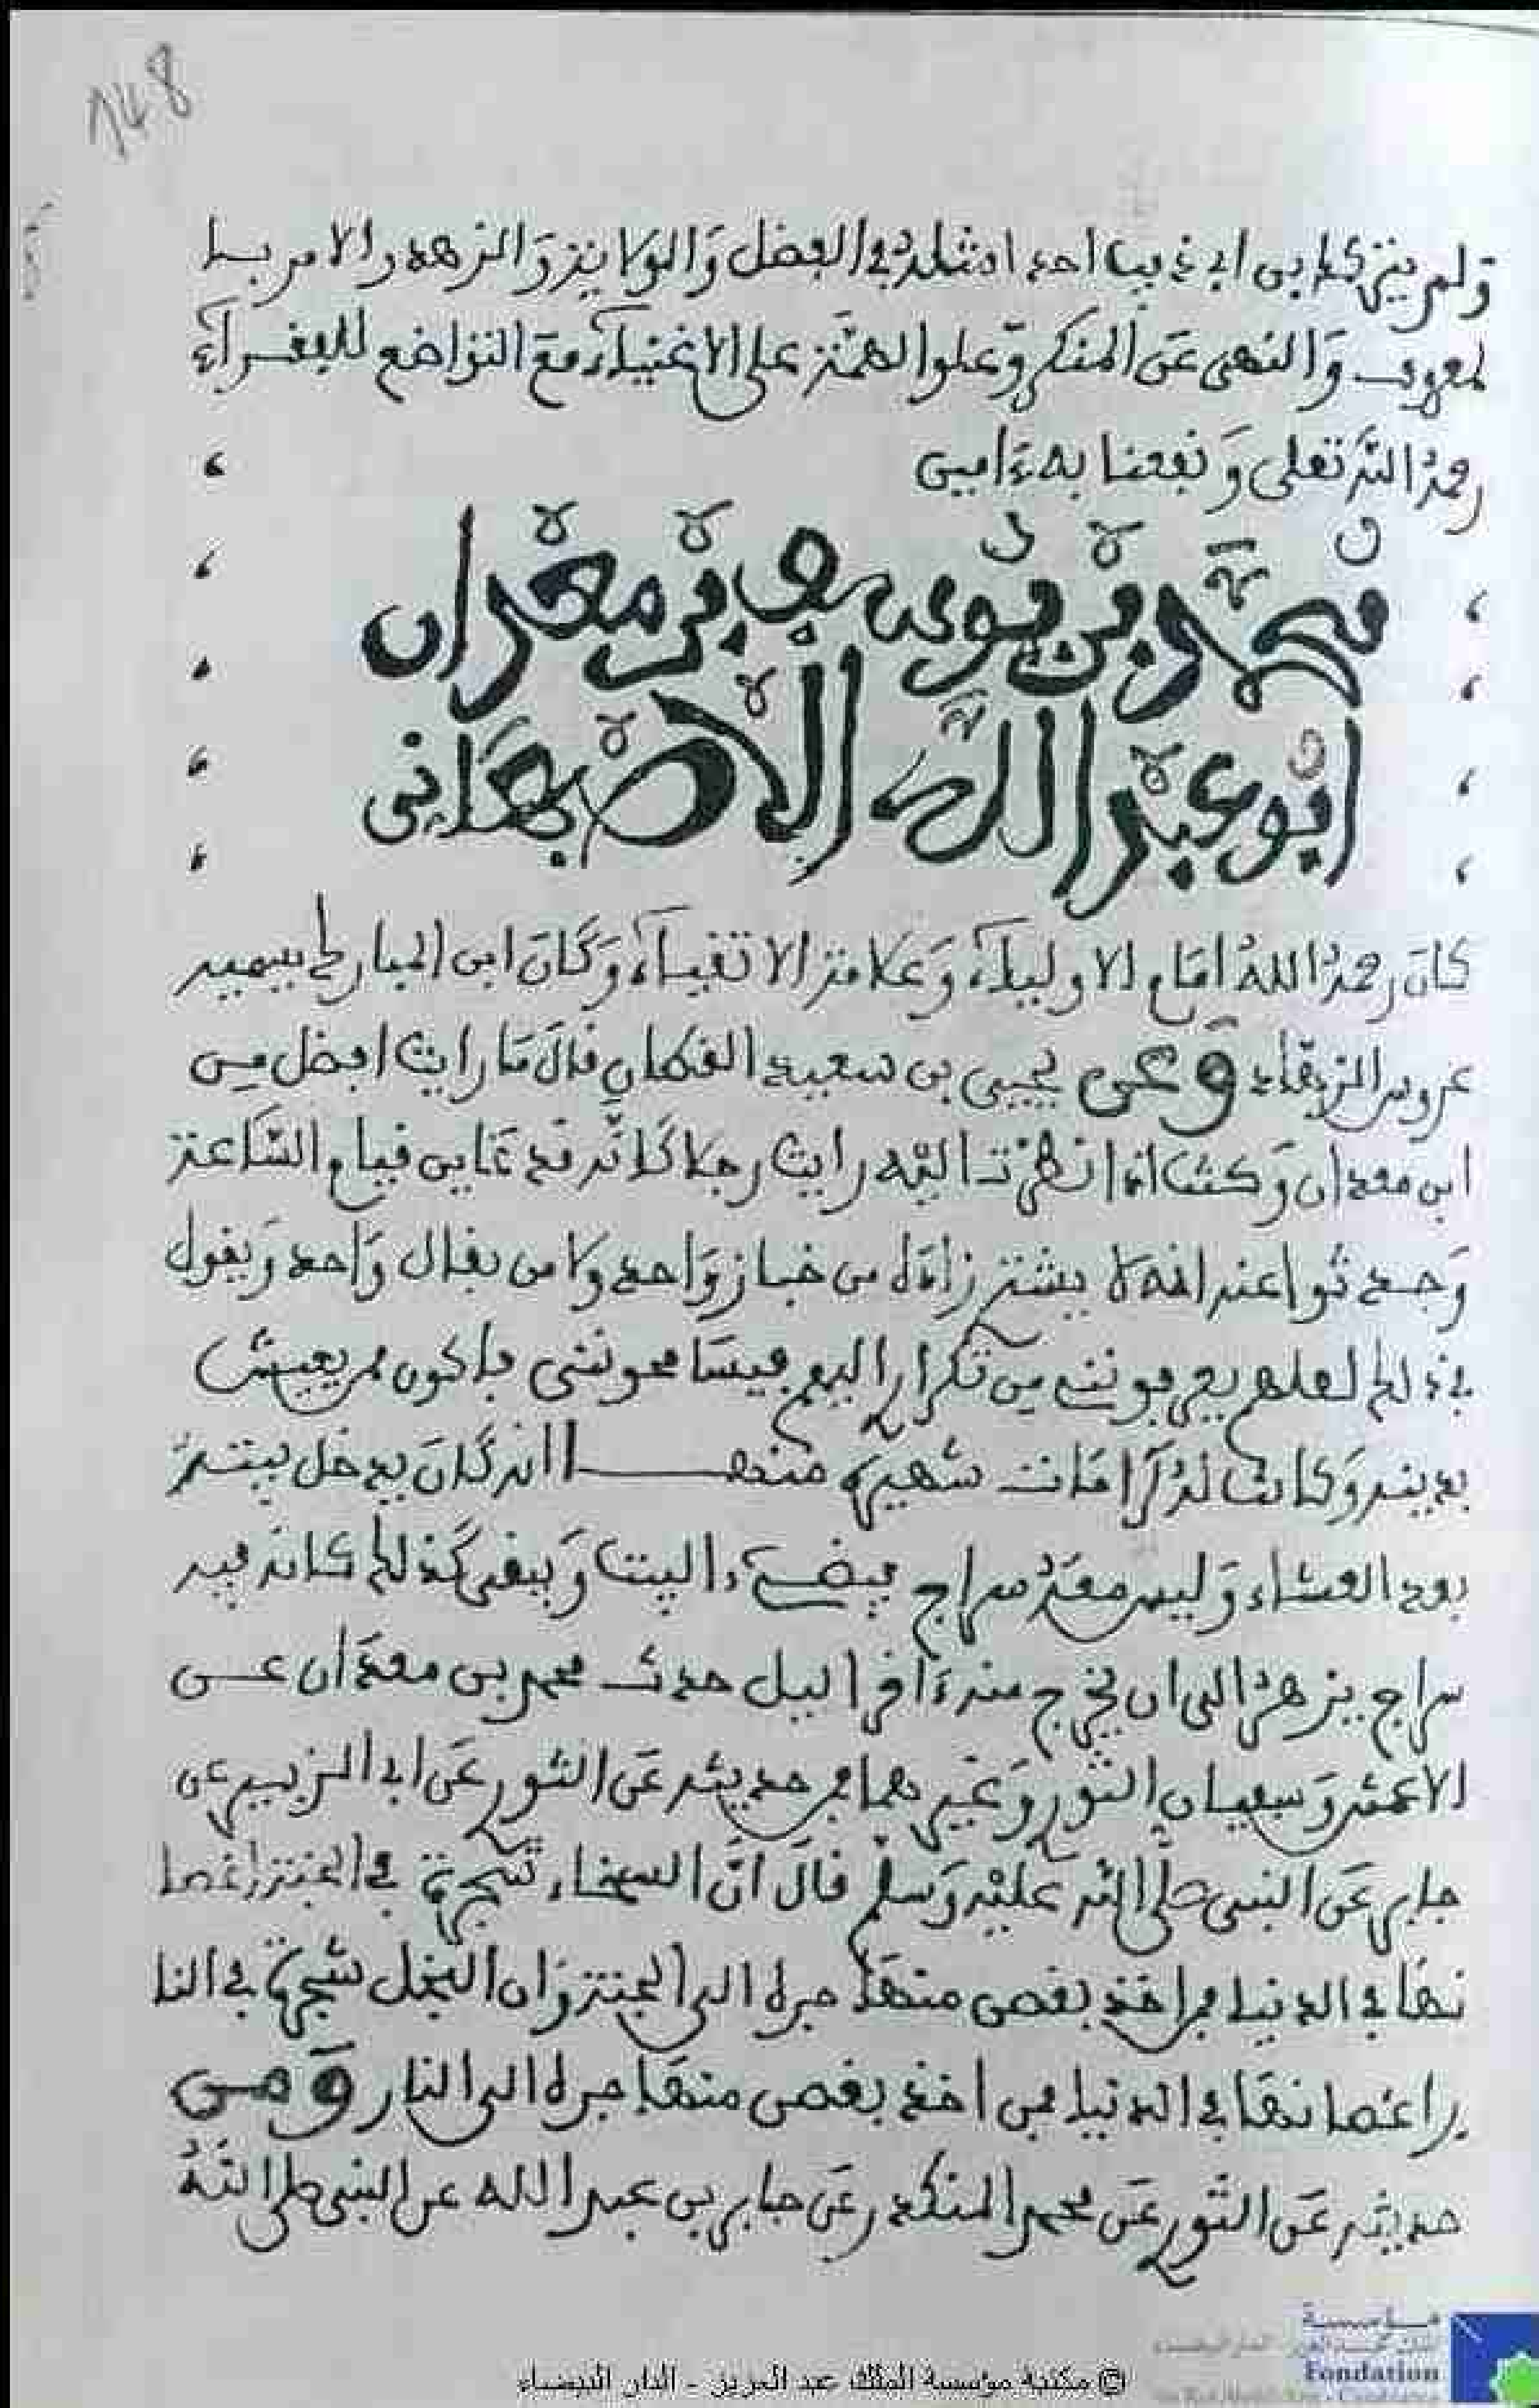 148
ولم يترك ابن ابي ذيب احدا مثله في الفضل والولاية والزهد والامر با
لمعروف والنهي عن المنكر وعلو الهمة على الاغنياء مع التواضع للفقراء
رحمه الله تعلى ونفعنا به ءامين
محمد بن يوسف بن معدان
ابو عبد الله الاصبهاني
كان رحمه الله امام الاولياء وعلامة الاتقياء وكان ابن المبارك يسميه
عروس الزهاد وعن يحيى بن سعيد القطان قال ما رايت افضل من
ابن معدان وكنت اذا نظرت اليه رايت رجلا كانه قد عاين قيام الساعة
وحدثوا عنه انه لا يشتر زاده من خباز واحد ولا من بقال واحد ويقول
في ذلك لعلهم يعرفونني من تكرار البيع فيسامحونني فاكون ممن يعيش
بدينه وكانت له كرامات شهيرة منها انه كان يدخل بيته
بعد العشاء وليس معه سراج فيضيء البيت ويبقى كذلك كانه فيه
سراج يزهر الى ان يخرج منه ءاخر اليل حدث محمد بن معدان عن
الاعمش وسفيان الثور وغيرهما فمن حديثه عن الثور عن ابي الزبير عن
جابر عن النبي صلى الله عليه وسلم قال ان السخاء شجرة في الجنة اغصا
نها في الدنيا فمن اخذ بغصن منها جره الى الجنة وان البخل شجرة في النا
ر اغصانها في الدنيا فمن اخذ بغصن منها جره الى النار ومن
حديثه عن الثور عن محمد المنكدر عن جابر بن عبد الله عن النبي صلى الله
© مكتبة مؤسسة الملك عبد العزيز - الدار البيضاء
مؤسسة
Fondation